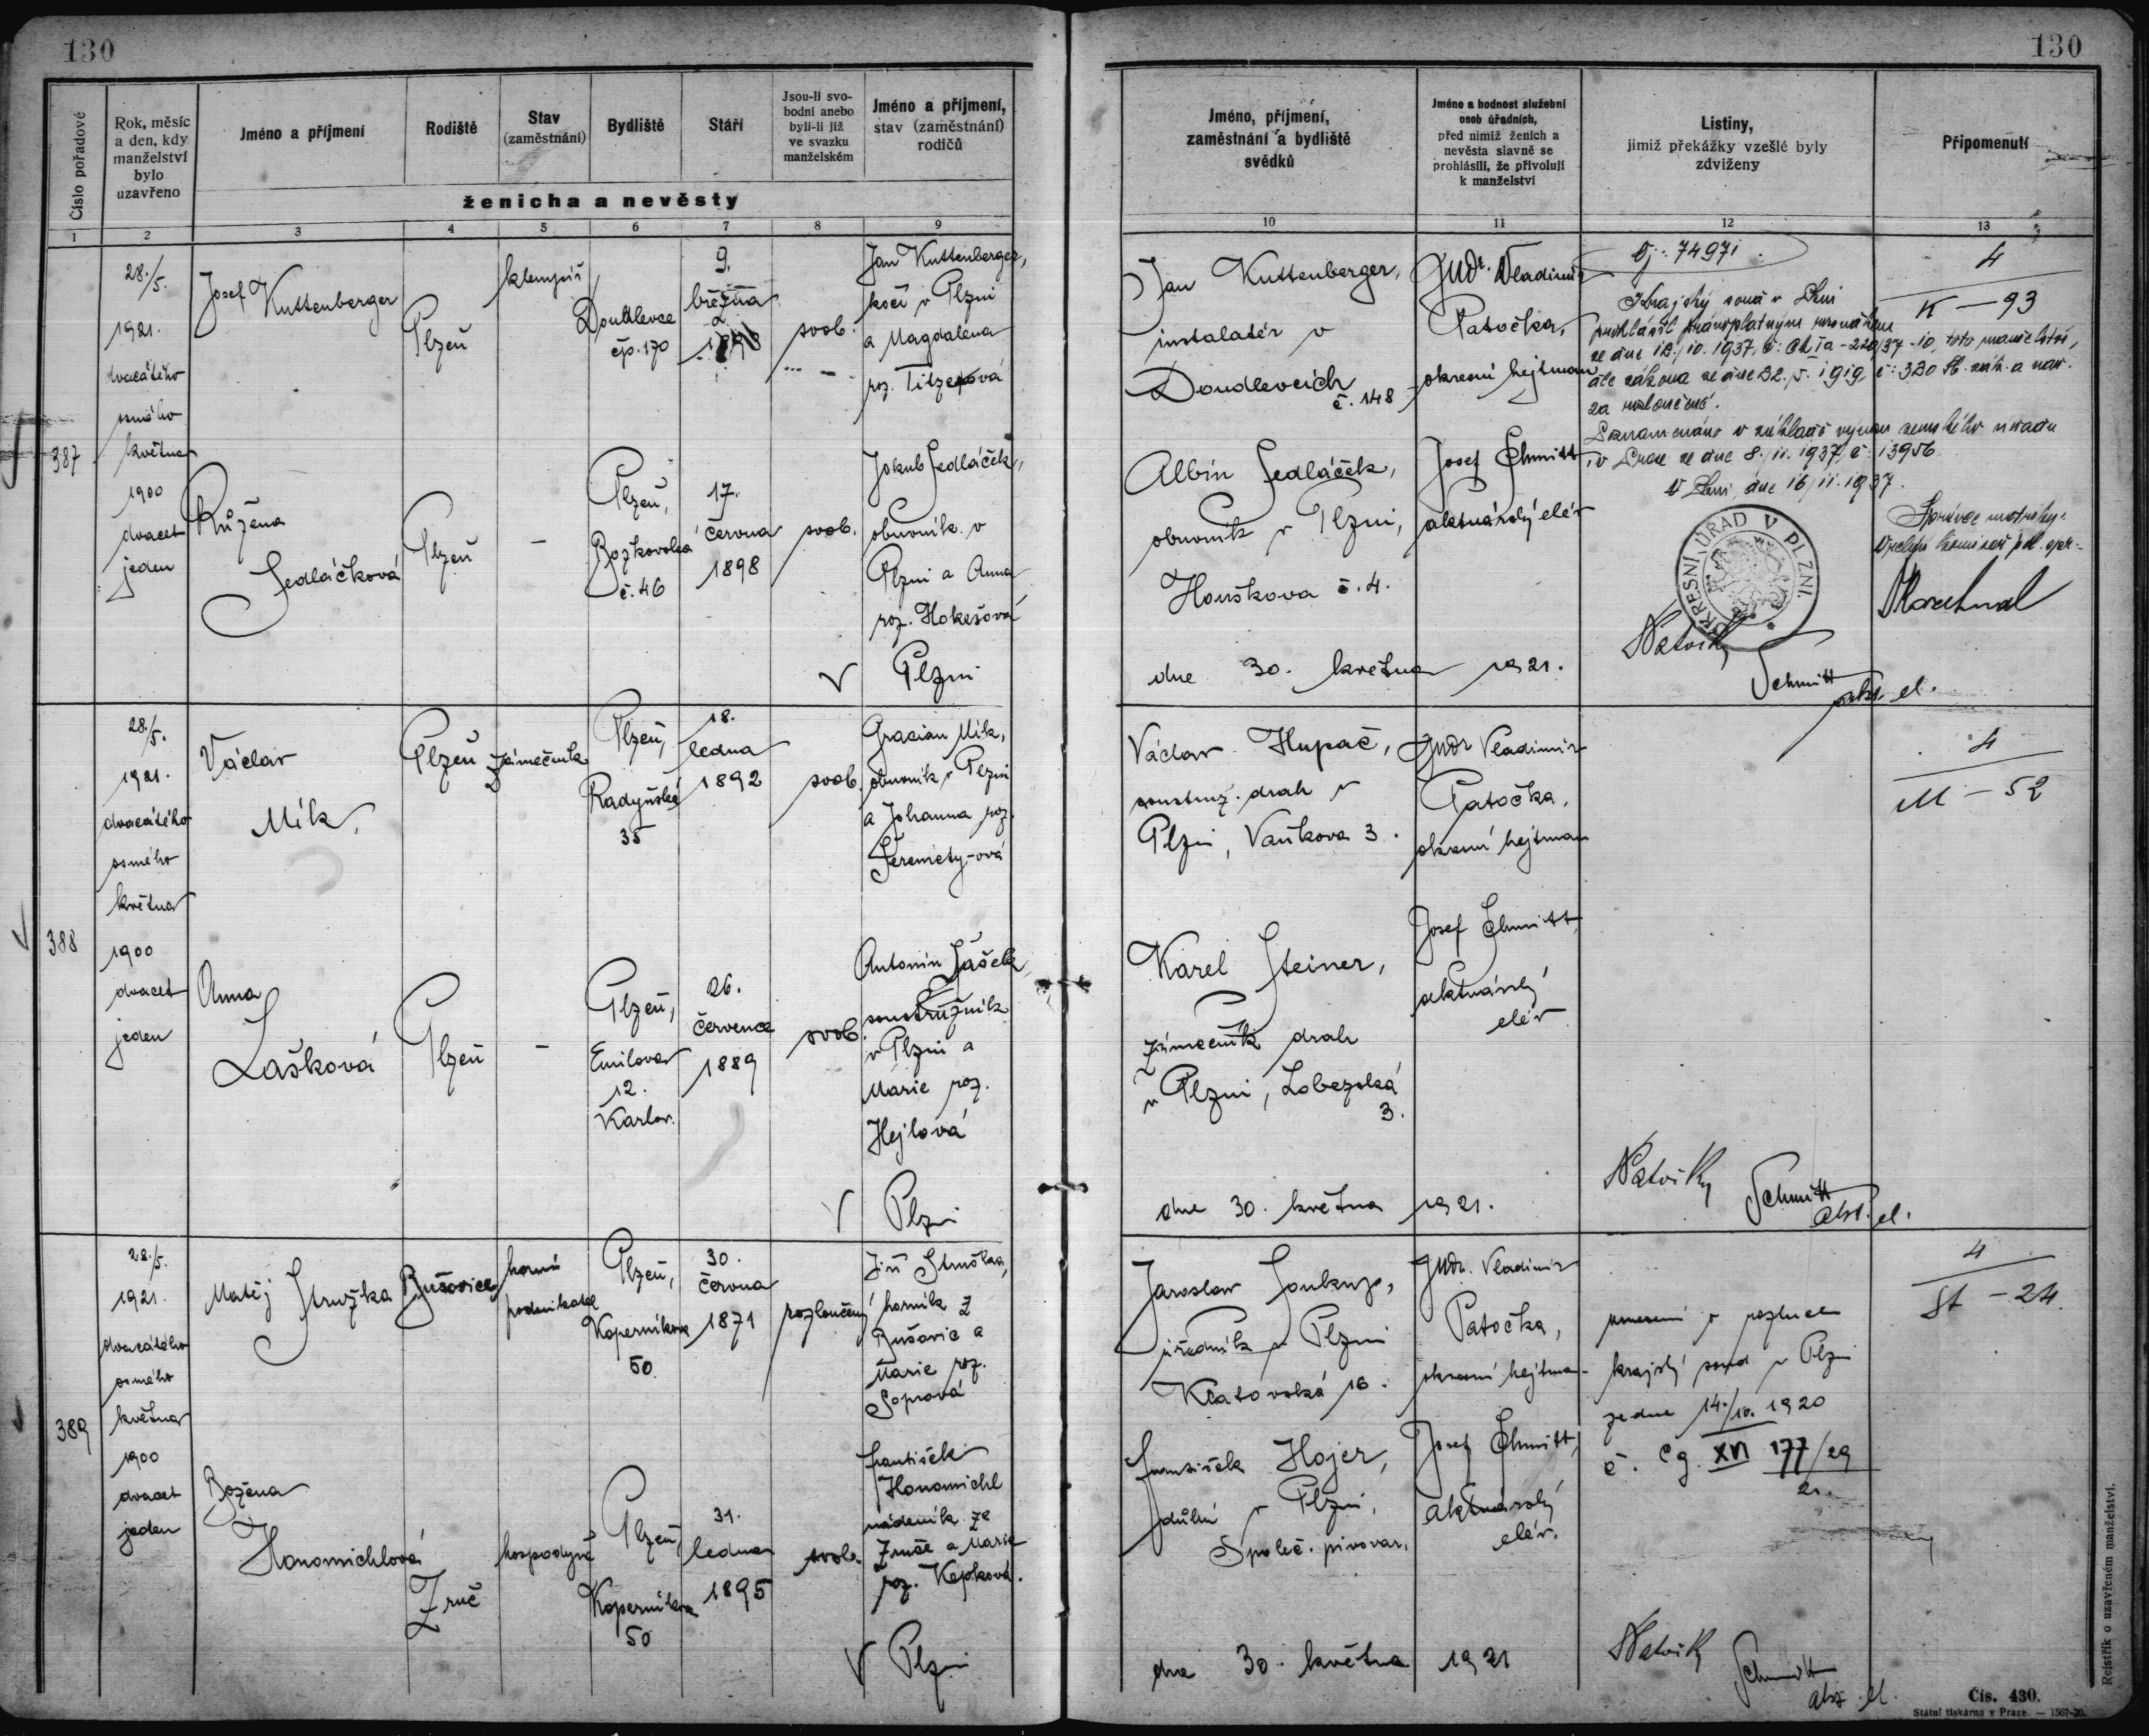 130
130
Číslo pořadové
Rok, měsíc
a den, kdy
manželství
bylo
uzavřeno
Jméno a příjmení
Rodiště
Stav
(zaměstnání)
Bydliště
Stáří
Jsou-li svo-
bodni anebo
byli-li již
ve svazku
manželském
Jméno a příjmení,
stav (zaměstnání)
rodičů
ženicha a nevěsty
1 2 3 4 5 6 7 8 9
Jméno, příjmení,
zaměstnání a bydliště
svědků
Jméno a hodnost služební
osob úřadních,
před nimiž ženich a
nevěsta slavně se
prohlásili, že přivolují
k manželství
Listiny,
jimiž překážky vzešlé byly
zdviženy
Připomenutí
10 11 12 13
387
28./5.
1921.
dvacátého
osmého
května
1900
dvacet
jeden
Josef
Kuttenberger
Plzeň
klempíř
Doudlevce
čp. 170
9.
března
svob.
Jan Kuttenberger,
kočí v Plzni
a Magdalena
roz.
Růžena
Sedláčková
Plzeň
–
Plzeň,
č. 46
17.
června
1898
svob.
Jakub Sedláček,
obuvník v
Plzni a Anna
roz. Hokešová
V Plzni
Jan Kuttenberger,
instalatér v
Doudlevcích
č. 148
Albín Sedláček,
obuvník v Plzni,
Houškova č. 4.
dne 30. května 1921.
JUDr. Vladimír
Patočka,
okresní hejtman
Josef Schmitt,
aktuárský elév
Čj: 74971.
Krajský soud v Plzni
prohlásil právoplatným
ze dne 12./10. 1937, č: Ck Ia - 220/37 - 10, toto manželství,
dle zákona ze dne 22. 5. 1919, č: 320 Sb. zák. a nař.
za rozloučené.
Poznamenáno v základě výnosu zemského úřadu
v Praze ze dne 8./11. 1937, č: 13956
V Plzni, dne 16/11. 1937.
OKRESNÍ ÚŘAD V PLZNI.
Schmitt
akt. el.
4
K – 93
Správce matriky:
388
28./5.
1921.
dvacátého
osmého
května
1900
dvacet
jeden
Václav
Mík,
Plzeň
zámečník
Plzeň,
Radyňská
35
18.
ledna
1892
svob.
Gracian Mík,
obuvník v Plzni
a Johanna roz.
Anna
Lašková
Plzeň
–
Plzeň,
Emilova
12.
Karlov.
26.
července
1889
svob.
Antonín Lašek,
soustružník
v Plzni a
Marie roz.
Hejlová
V Plzni
Václav Hupač,
soustruž. drah v
Plzni, Vaňkova 3.
Karel Steiner,
zámečník drah
v Plzni, Lobezská
3.
dne 30. května 1921.
JUDr Vladimír
Patočka,
okresní hejtman
Josef Schmitt,
aktuárský
elév
Schmitt
akt. el.
4
M – 52
389
28./5.
1921.
dvacátého
osmého
května
1900
dvacet
jeden
Matěj Stružka
Bušovice
horní
podnikatel
Plzeň,
Koperníkova
50
30.
června
1871
rozloučený
Jiří Stružka,
horník z
Bušovic a
Marie roz.
Soprová
Božena
Honomichlová
Zruč
hospodyně
Plzeň,
Koperníkova
50
31.
ledna
1895
svob.
František
Honomichl
nádeník ze
Zruče a Marie
roz. Kepková.
V Plzni
Jaroslav Soukup,
úředník v Plzni
Klatovská 16.
František Hojer,
v Plzni,
Společ. pivovar.
dne 30. května 1921
JUDr. Vladimír
Patočka,
okresní hejtman
Josef Schmitt,
aktuárský
elév.
usnesení o rozluce
krajský soud v Plzni
ze dne 14./10. 1920
č. Cg. XVI 177/29
21.
Schmitt
akt. el.
4
St – 24.
Rejstřík o uzavřeném manželství.
Čís. 430.
Státní tiskárna v Praze. — 1567-20.